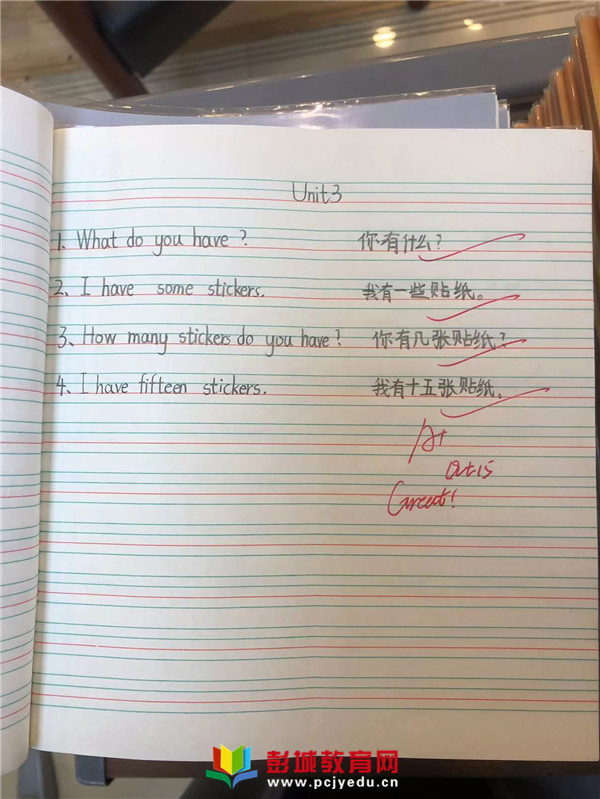 Unit3
1. What do you have? 你有什么?
2、I have some stickers. 我有一些贴纸。
3、How many stickers do you have? 你有几张贴纸?
4、I have fifteen stickers. 我有十五张贴纸。
A+
Oct 15
Great!
彭城教育网
www.pcjyedu.cn